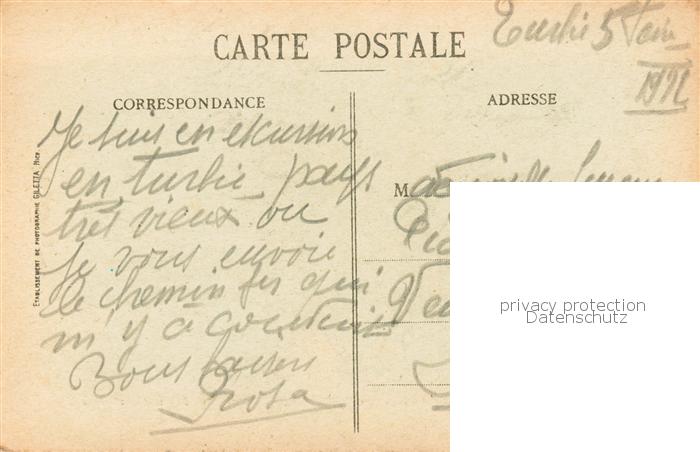 CARTE POSTALE
Turbie 5
CORRESPONDANCE
ADRESSE
Je suis en excursion
en turbie pays
très vieux ou
je vous envoie
le chemin fer qui
m'y a
Bons baisers
Rosa
ETABLISSEMENT DE PHOTOGRAPHIE GILETTA, NICE.
M
privacy protection
Datenschutz